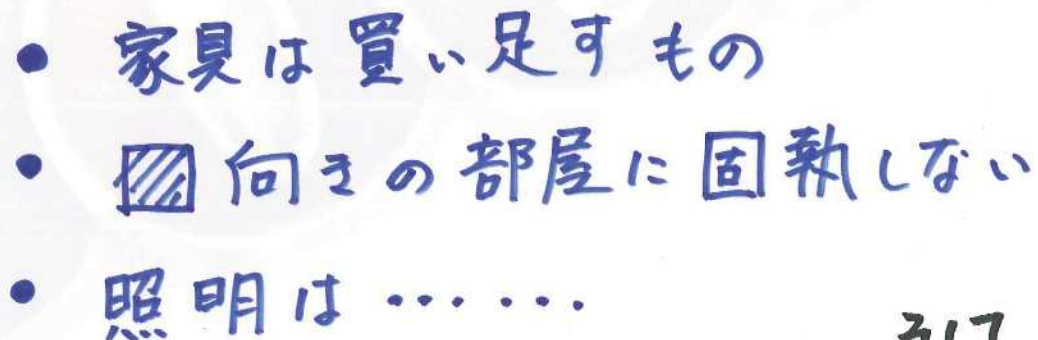 • 家具は買い足すもの
• 向きの部屋に固執しない
• 照明は……
317